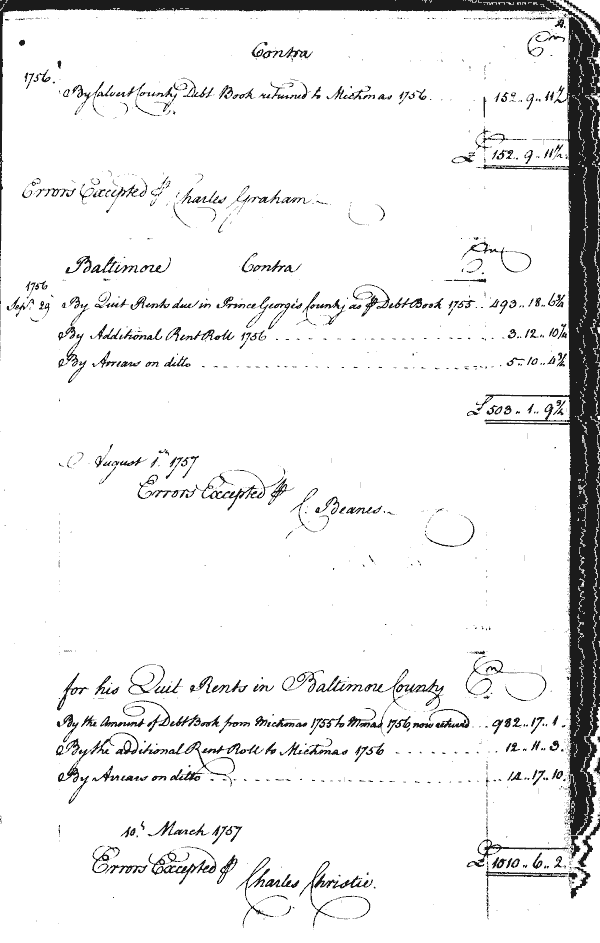 Contra
1756.
By Calvert County Debt Book returned to Michmas 1756. 152..9..11½
£ 152..9..11½.
Errors Excepted ⅌ Charles Graham
Baltimore Contra
1756
Sepr. 29 By Quit Rents due in Prince Georges County as ⅌ Debt Book 1755.. 493..18..6¾
By Additional Rent Roll 1756 3..12..10¼
By Arrears on ditto 5..10..4¾
£ 503..1..9¾
August 1st 1757
Errors Excepted ⅌
C. Beanes.
for his Quit Rents in Baltimore County
By the Amount of Debt Book from Michmas 1755 to Mmas 1756, now returned 982..17..1.
By the additional Rent Roll to Michmas 1756 12..11..3.
By Arrears on ditto 14..17..10.
10th March 1757
Errors Excepted ⅌ £ 1010..6..2.
Charles Christie.